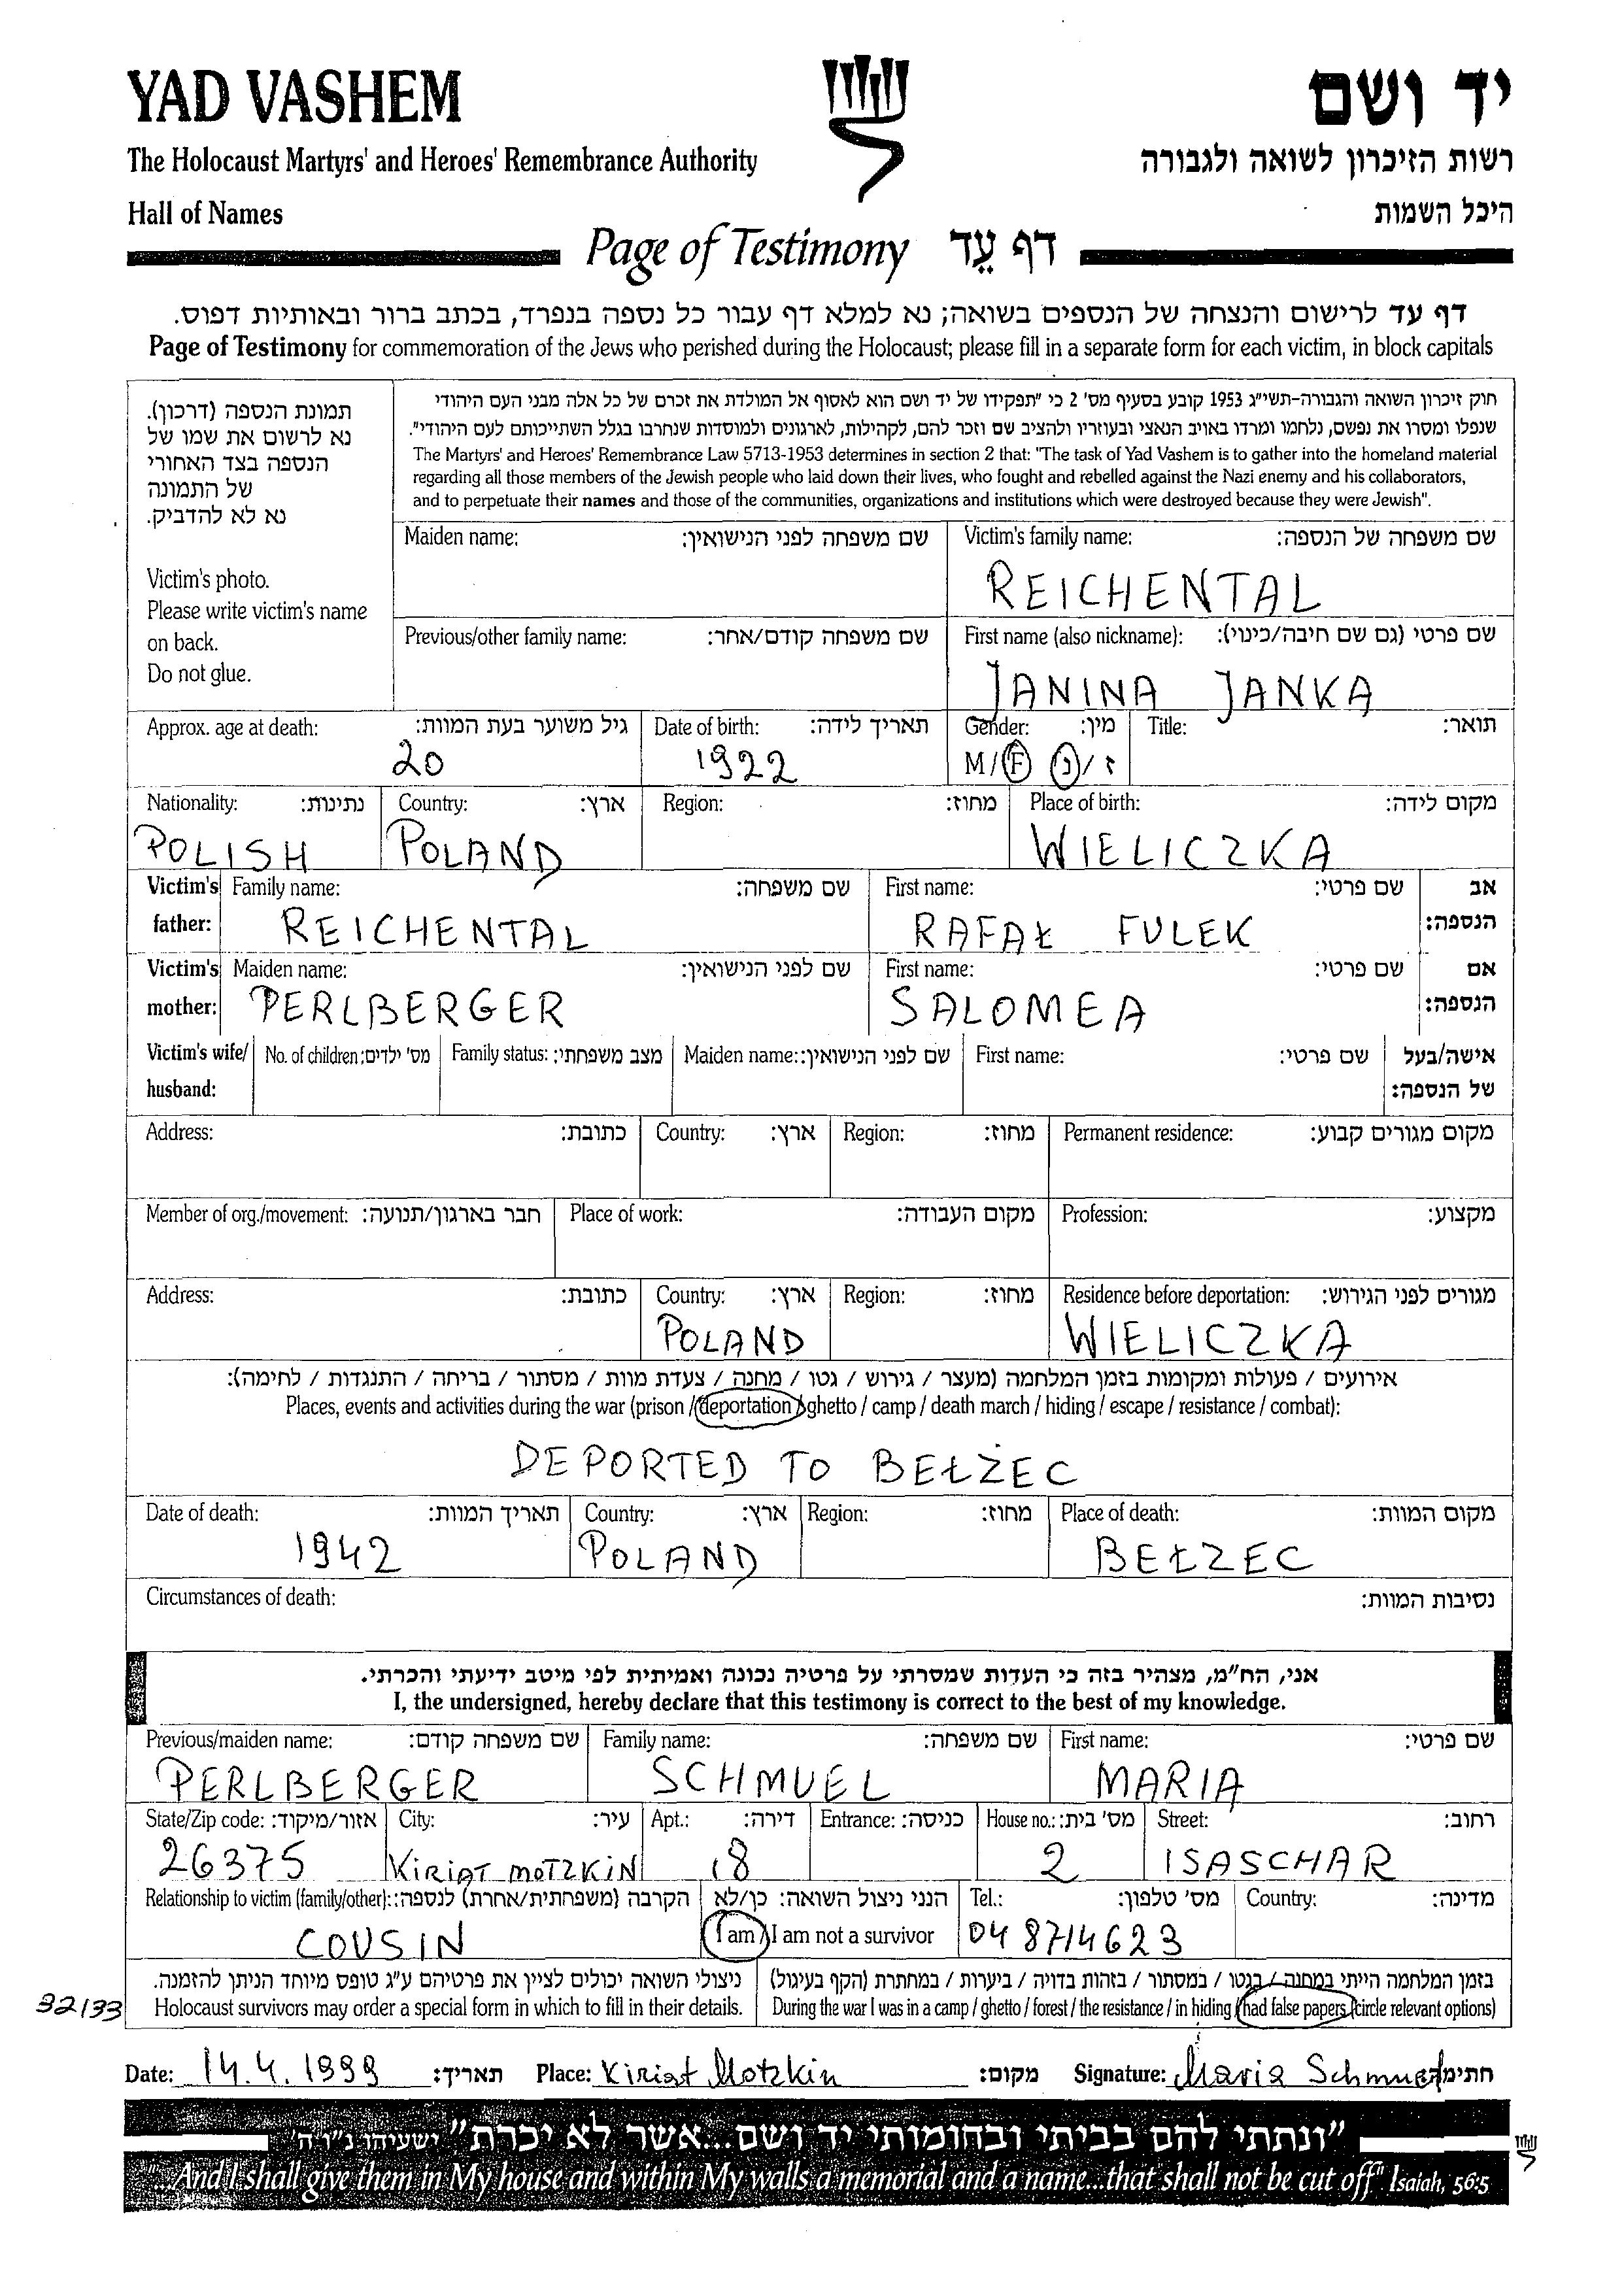 YAD VASHEM
יד ושם
The Holocaust Martyrs' and Heroes' Remembrance Authority
רשות הזיכרון לשואה ולגבורה
Hall of Names
היכל השמות
Page of Testimony דף עֵד
דף עד לרישום והנצחה של הנספים בשואה; נא למלא דף עבור כל נספה בנפרד, בכתב ברור ובאותיות דפוס.
Page of Testimony for commemoration of the Jews who perished during the Holocaust; please fill in a separate form for each victim, in block capitals
תמונת הנספה (דרכון).
נא לרשום את שמו של
הנספה בצד האחורי
של התמונה
נא לא להדביק.
Victim's photo.
Please write victim's name
on back.
Do not glue.
חוק זיכרון השואה והגבורה-תשי"ג 1953 קובע בסעיף מס' 2 כי "תפקידו של יד ושם הוא לאסוף אל המולדת את זכרם של כל אלה מבני העם היהודי
שנפלו ומסרו את נפשם, נלחמו ומרדו באויב הנאצי ובעוזריו ולהציב שם וזכר להם, לקהילות, לארגונים ולמוסדות שנחרבו בגלל השתייכותם לעם היהודי".
The Martyrs' and Heroes' Remembrance Law 5713-1953 determines in section 2 that: "The task of Yad Vashem is to gather into the homeland material
regarding all those members of the Jewish people who laid down their lives, who fought and rebelled against the Nazi enemy and his collaborators,
and to perpetuate their names and those of the communities, organizations and institutions which were destroyed because they were Jewish".
Maiden name: שם משפחה לפני הנישואין: Victim's family name: שם משפחה של הנספה:
REICHENTAL
Previous/other family name: שם משפחה קודם/אחר: First name (also nickname): שם פרטי (גם שם חיבה/כינוי):
JANINA JANKA
Approx. age at death: גיל משוער בעת המוות: Date of birth: תאריך לידה: Gender: מין: Title: תואר:
20 1922 M/F ז/נ
Nationality: נתינות: Country: ארץ: Region: מחוז: Place of birth: מקום לידה:
POLISH POLAND WIELICZKA
Victim's Family name: שם משפחה: First name: שם פרטי: אב
father: REICHENTAL RAFAŁ FULEK הנספה:
Victim's Maiden name: שם לפני הנישואין: First name: שם פרטי: אם
mother: PERLBERGER SALOMEA הנספה:
Victim's wife/ No. of children: מס' ילדים: Family status: מצב משפחתי: Maiden name: שם לפני הנישואין: First name: שם פרטי: אישה/בעל
husband: של הנספה:
Address: כתובת: Country: ארץ: Region: מחוז: Permanent residence: מקום מגורים קבוע:
Member of org./movement: חבר בארגון/תנועה: Place of work: מקום העבודה: Profession: מקצוע:
Address: כתובת: Country: ארץ: Region: מחוז: Residence before deportation: מגורים לפני הגירוש:
POLAND WIELICZKA
אירועים / פעולות ומקומות בזמן המלחמה (מעצר / גירוש / גטו / מחנה / צעדת מוות / מסתור / בריחה / התנגדות / לחימה):
Places, events and activities during the war (prison / deportation / ghetto / camp / death march / hiding / escape / resistance / combat):
DEPORTED TO BEŁŻEC
Date of death: תאריך המוות: Country: ארץ: Region: מחוז: Place of death: מקום המוות:
1942 POLAND BEŁZEC
Circumstances of death: נסיבות המוות:
אני, הח"מ, מצהיר בזה כי העדות שמסרתי על פרטיה נכונה ואמיתית לפי מיטב ידיעתי והכרתי.
I, the undersigned, hereby declare that this testimony is correct to the best of my knowledge.
Previous/maiden name: שם משפחה קודם: Family name: שם משפחה: First name: שם פרטי:
PERLBERGER SCHMUEL MARIA
State/Zip code: אזור/מיקוד: City: עיר: Apt.: דירה: Entrance: כניסה: House no.: מס' בית: Street: רחוב:
26375 KIRIAT MOTZKIN 18 2 ISASCHAR
Relationship to victim (family/other): הקרבה (משפחתית/אחרת) לנספה: הנני ניצול השואה: כן/לא Tel.: מס' טלפון: Country: מדינה:
COUSIN I am / I am not a survivor 04 8714623
ניצולי השואה יכולים לציין את פרטיהם ע"ג טופס מיוחד הניתן להזמנה. בזמן המלחמה הייתי במחנה / בגטו / במסתור / בזהות בדויה / ביערות / במחתרת (הקף בעיגול)
32/33 Holocaust survivors may order a special form in which to fill in their details. During the war I was in a camp / ghetto / forest / the resistance / in hiding / had false papers (circle relevant options)
Date: 14.4.1999 תאריך: Place: Kiriat Motzkin מקום: Signature: Maria Schmuel חתימה
"ונתתי להם בביתי ובחומותי יד ושם...אשר לא יכרת" ישעיהו נ"ו ה'
"...And I shall give them in My house and within My walls a memorial and a name...that shall not be cut off" Isaiah, 56:5